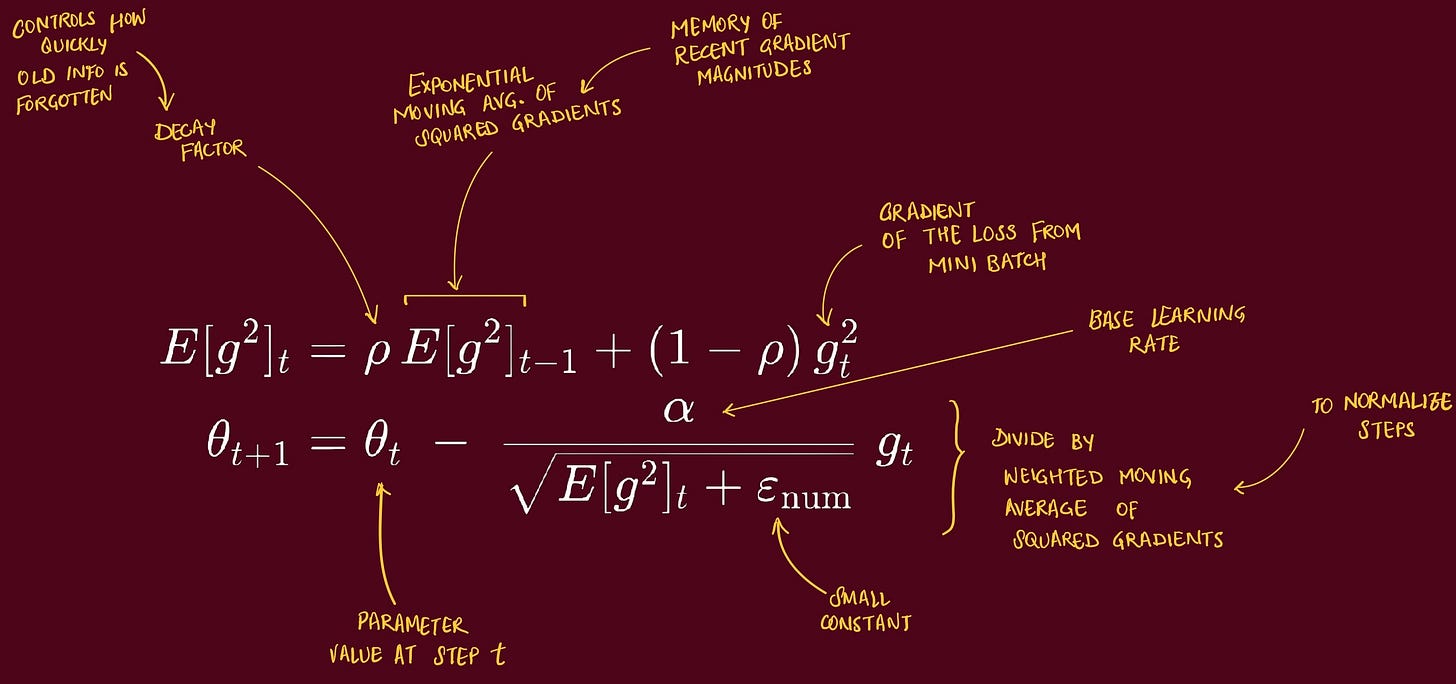 CONTROLS HOW
QUICKLY
OLD INFO IS
FORGOTTEN
DECAY
FACTOR
EXPONENTIAL
MOVING AVG. OF
SQUARED GRADIENTS
MEMORY OF
RECENT GRADIENT
MAGNITUDES
GRADIENT
OF THE LOSS FROM
MINI BATCH
BASE LEARNING
RATE
E[g²]_t = ρ E[g²]_{t−1} + (1 − ρ) g_t²
θ_{t+1} = θ_t − α / √(E[g²]_t + ε_num) g_t
DIVIDE BY
WEIGHTED MOVING
AVERAGE OF
SQUARED GRADIENTS
TO NORMALIZE
STEPS
SMALL
CONSTANT
PARAMETER
VALUE AT STEP t